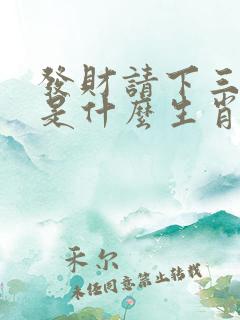 發財請下三
是什麼生肖
禾尔
未任同意禁止轉載